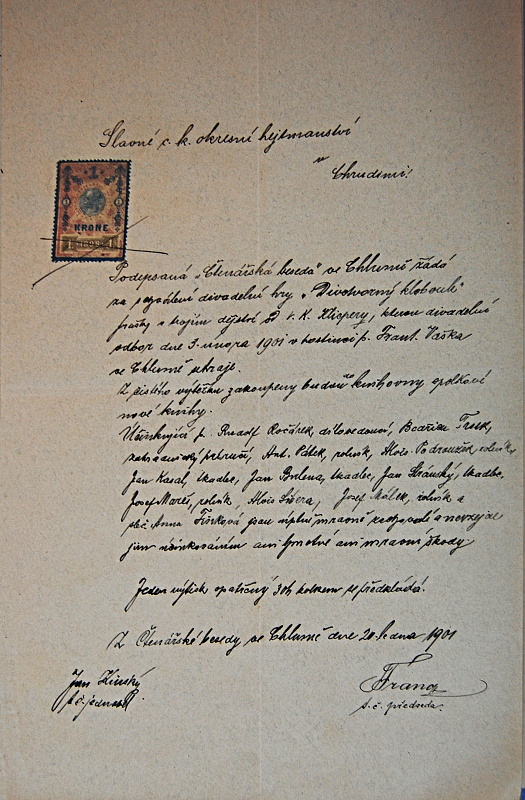 Slavné c. k. okresní hejtmanství
v
Chrudimi!
1
KRONE
1 1898 1
Podepsaná „Čtenářská beseda" ve Chlumě žádá
za svolení divadelní hry „Divotvorný klobouk"
frašky v trojím dějství od V. K. Klicpery, kterou divadelní
odbor dne 3. února 1901 v hostinci p. Frant. Vaška
ve Chlumě uhraje.
Z čistého výtěžku zakoupeny budou knihovny spolkové
nové knihy.
Účinkující p. Rudolf Kočárek, dílovedoucí, Bedřich
zahradnický Ant. Pátek, rolník, Alois Podroužek, rolník,
Jan Kasal, tkadlec, Jan tkadlec, Jan Stránský, tkadlec,
Josef Mareš, rolník, Alois Josef rolník a
slč. Anna jsou úplně mravně zachovalé a nevzejde
jim účinkováním ani hmotné ani mravní škody
Jeden výtisk opatřený 30h kolkem se předkládá.
Z Čtenářské besedy ve Chlumě dne 20. ledna 1901
Jan
t. č. jednatel.
Franc
t. č. předseda.